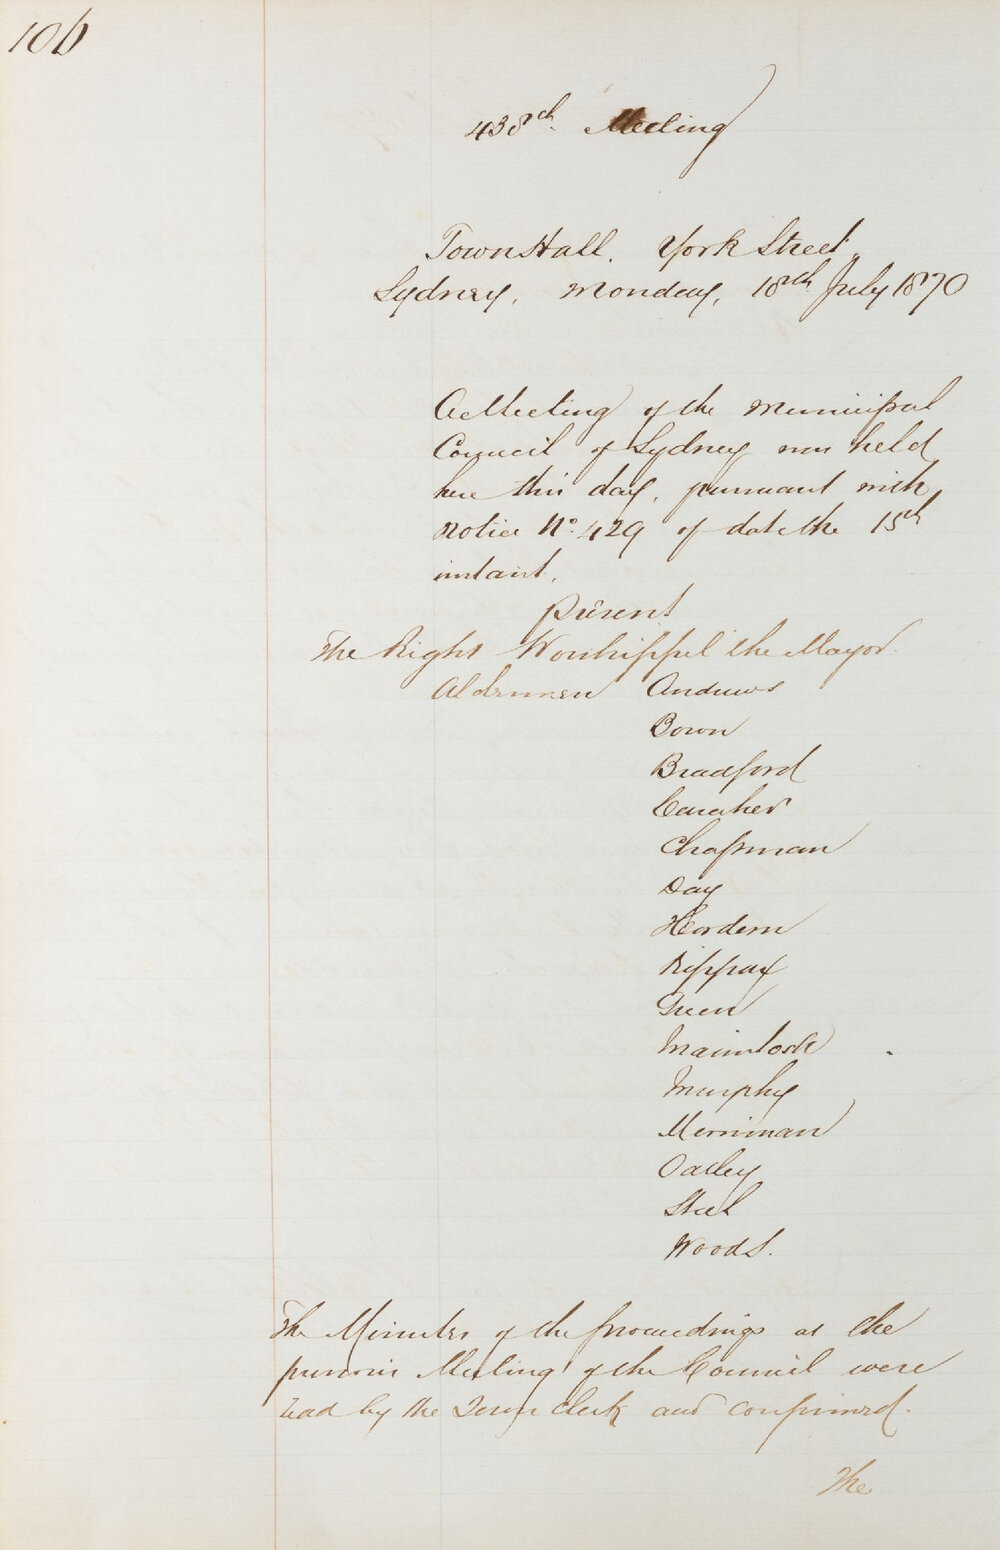 106
438th Meeting
Town Hall. York Street,
Sydney, Monday, 18th July 1870
A Meeting of the Municipal
Council of Sydney was held
here this day, pursuant with
Notice No. 429 of date the 15th
instant.
Present
The Right Worshipful the Mayor.
Aldermen Andrews
Bown
Bradford
Caraher
Chapman
Day
Hordern
Kippax
Green
Macintosh
Murphy
Merriman
Oatley
Steel
Woods.
The Minutes of the proceedings at the
previous Meeting of the Council were
read by the Town Clerk and confirmed.
The